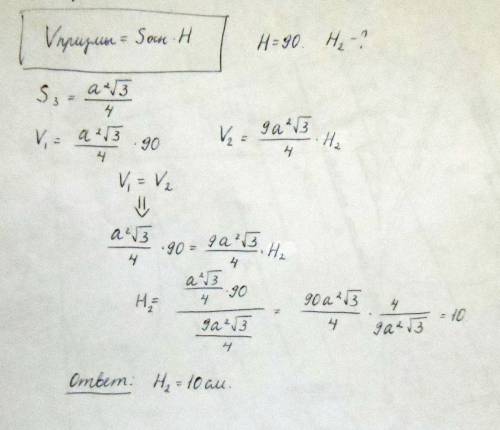 Vпризмы = Sосн · H
H = 90. H₂ - ?
S₃ = a²√3/4
V₁ = a²√3/4 · 90
V₂ = 9a²√3/4 · H₂
V₁ = V₂
⇓
a²√3/4 · 90 = 9a²√3/4 · H₂
H₂ = (a²√3/4 · 90)/(9a²√3/4) = 90a²√3/4 · 4/9a²√3 = 10
Ответ: H₂ = 10 см.